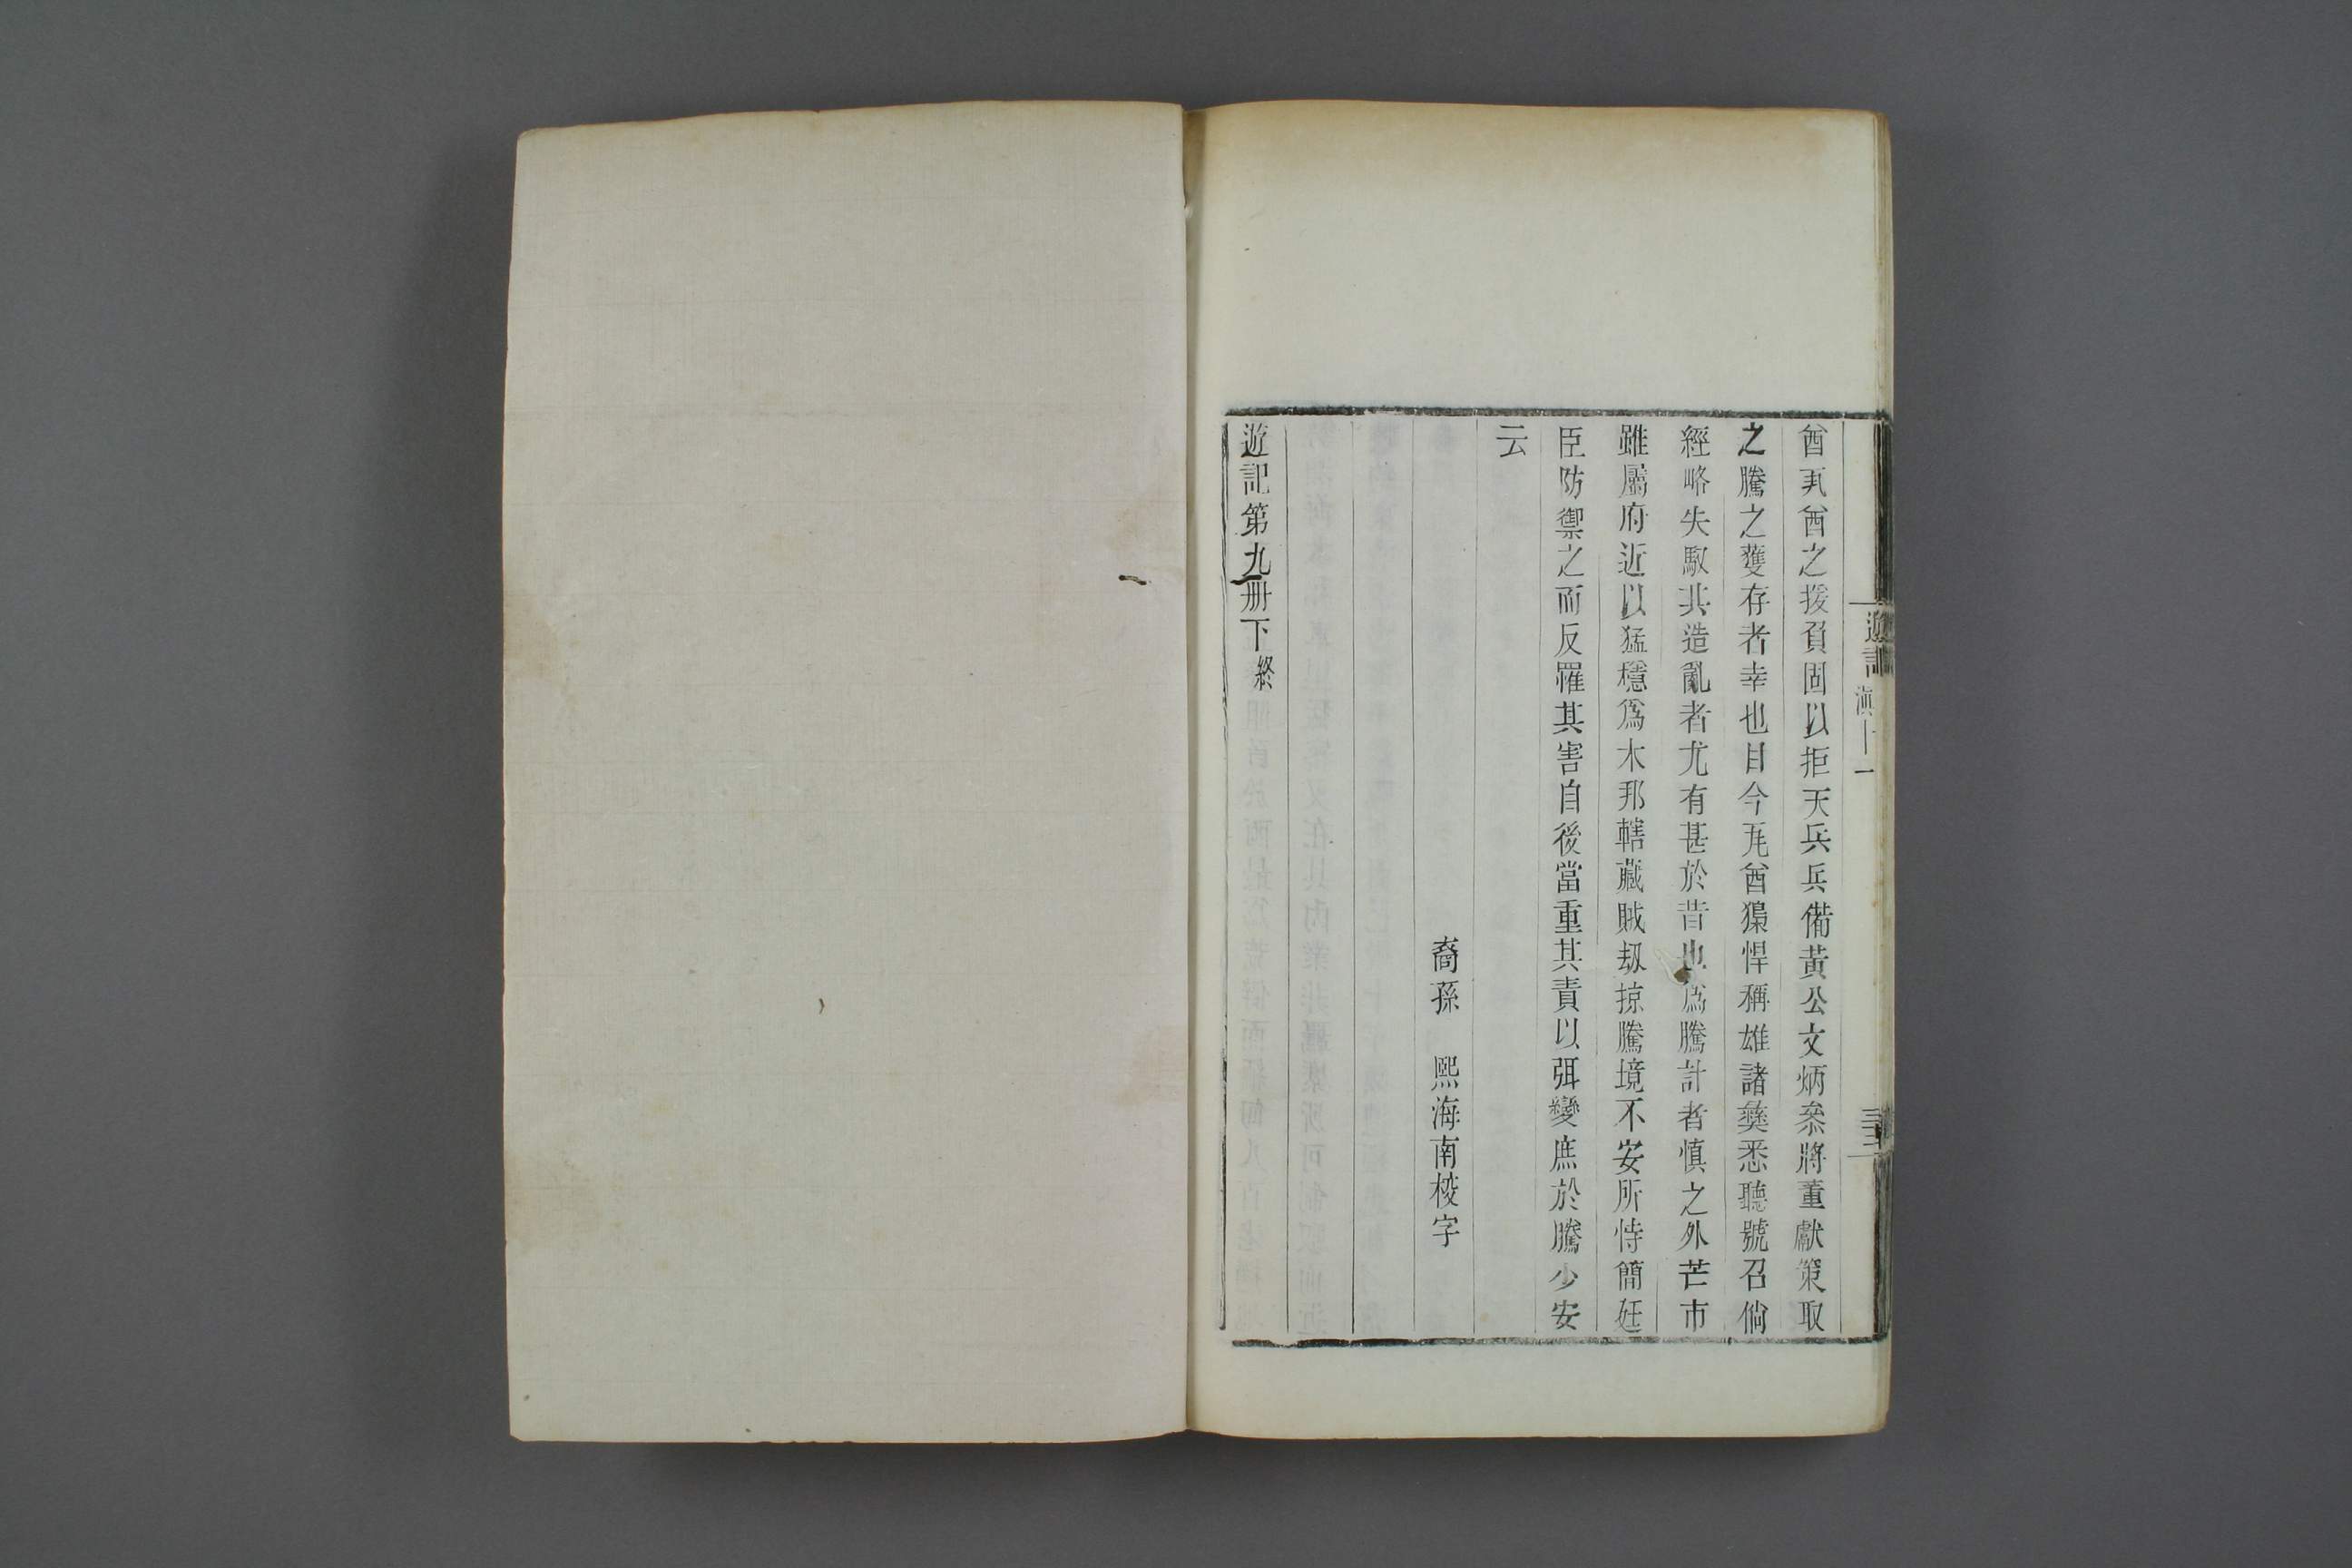 遊記
滇十一
酋瓦酋之援負固以拒天兵兵備黃公文炳叅將董獻策取
之騰之獲存者幸也目今瓦酋獷悍稱雄諸彝悉聽號召倘
經略失馭其造亂者尤有甚於昔也爲騰計者慎之外芒市
雖屬府近以猛穩爲木邦轄藏賊刼掠騰境不安所恃簡廷
臣防禦之而反罹其害自後當重其責以弭變庶於騰少安
云
裔孫　熙海南校字
遊記第九册下終